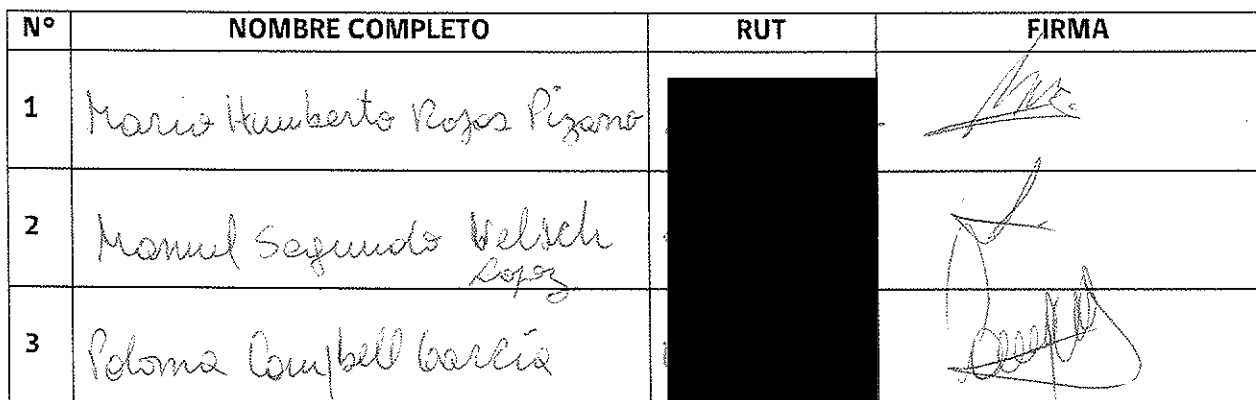 Nº NOMBRE COMPLETO RUT FIRMA
1 Mario Humberto Rojas Pizarro
2 Manuel Segundo Welsch
Lopez
3 Paloma Campbell García